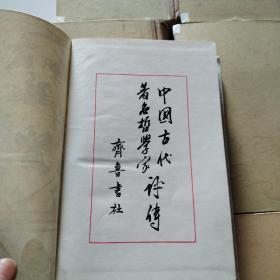 中國古代
著名哲學家評傳
齊魯書社